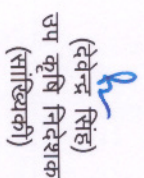 (देवेन्द्र सिंह)
उप कृषि निदेशक
(सांख्यिकी)